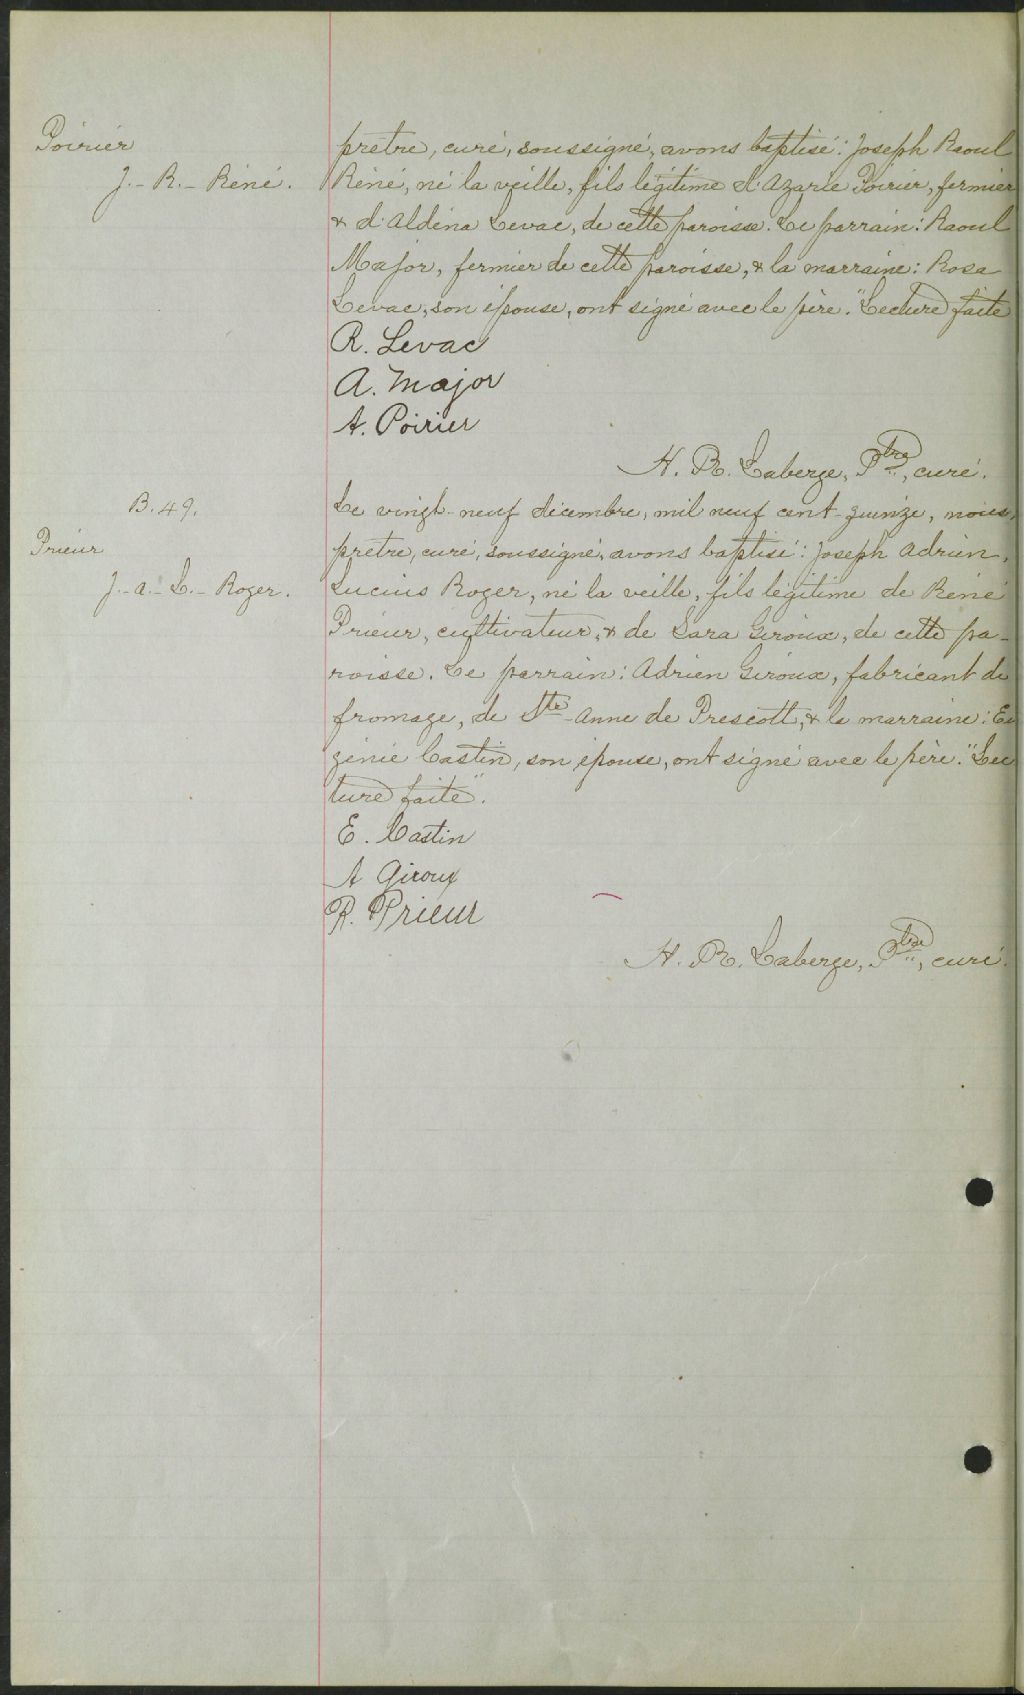 Poirier
J.- R.- Réné.
prêtre, curé, soussigné, avons baptisé: Joseph Raoul
Réné, né la veille, fils légitime d'Azarie Poirier, fermier
& d'Aldéna Levac, de cette paroisse. Le parrain: Raoul
Major, fermier de cette paroisse, & la marraine: Rosa
Levac, son épouse, ont signé avec le père. "Lecture faite
R. Levac
A. Major
A. Poirier
H. R. Laberge, Ptre, curé.
B. 49.
Prieur
J.- A.- L.- Roger.
Le vingt-neuf décembre, mil neuf cent-quinze, nous,
prêtre, curé, soussigné, avons baptisé: Joseph Adrien,
Lucius Roger, né la veille, fils légitime de Réné
Prieur, cultivateur, & de Sara Giroux, de cette pa-
roisse. Le parrain: Adrien Giroux, fabricant de
fromage, de Ste-Anne de Prescott, & la marraine: Eu
génie Castin, son épouse, ont signé avec le père. "Lec
ture faite".
E. Castin
A Giroux
R. Prieur
H. R. Laberge, Ptre, curé.